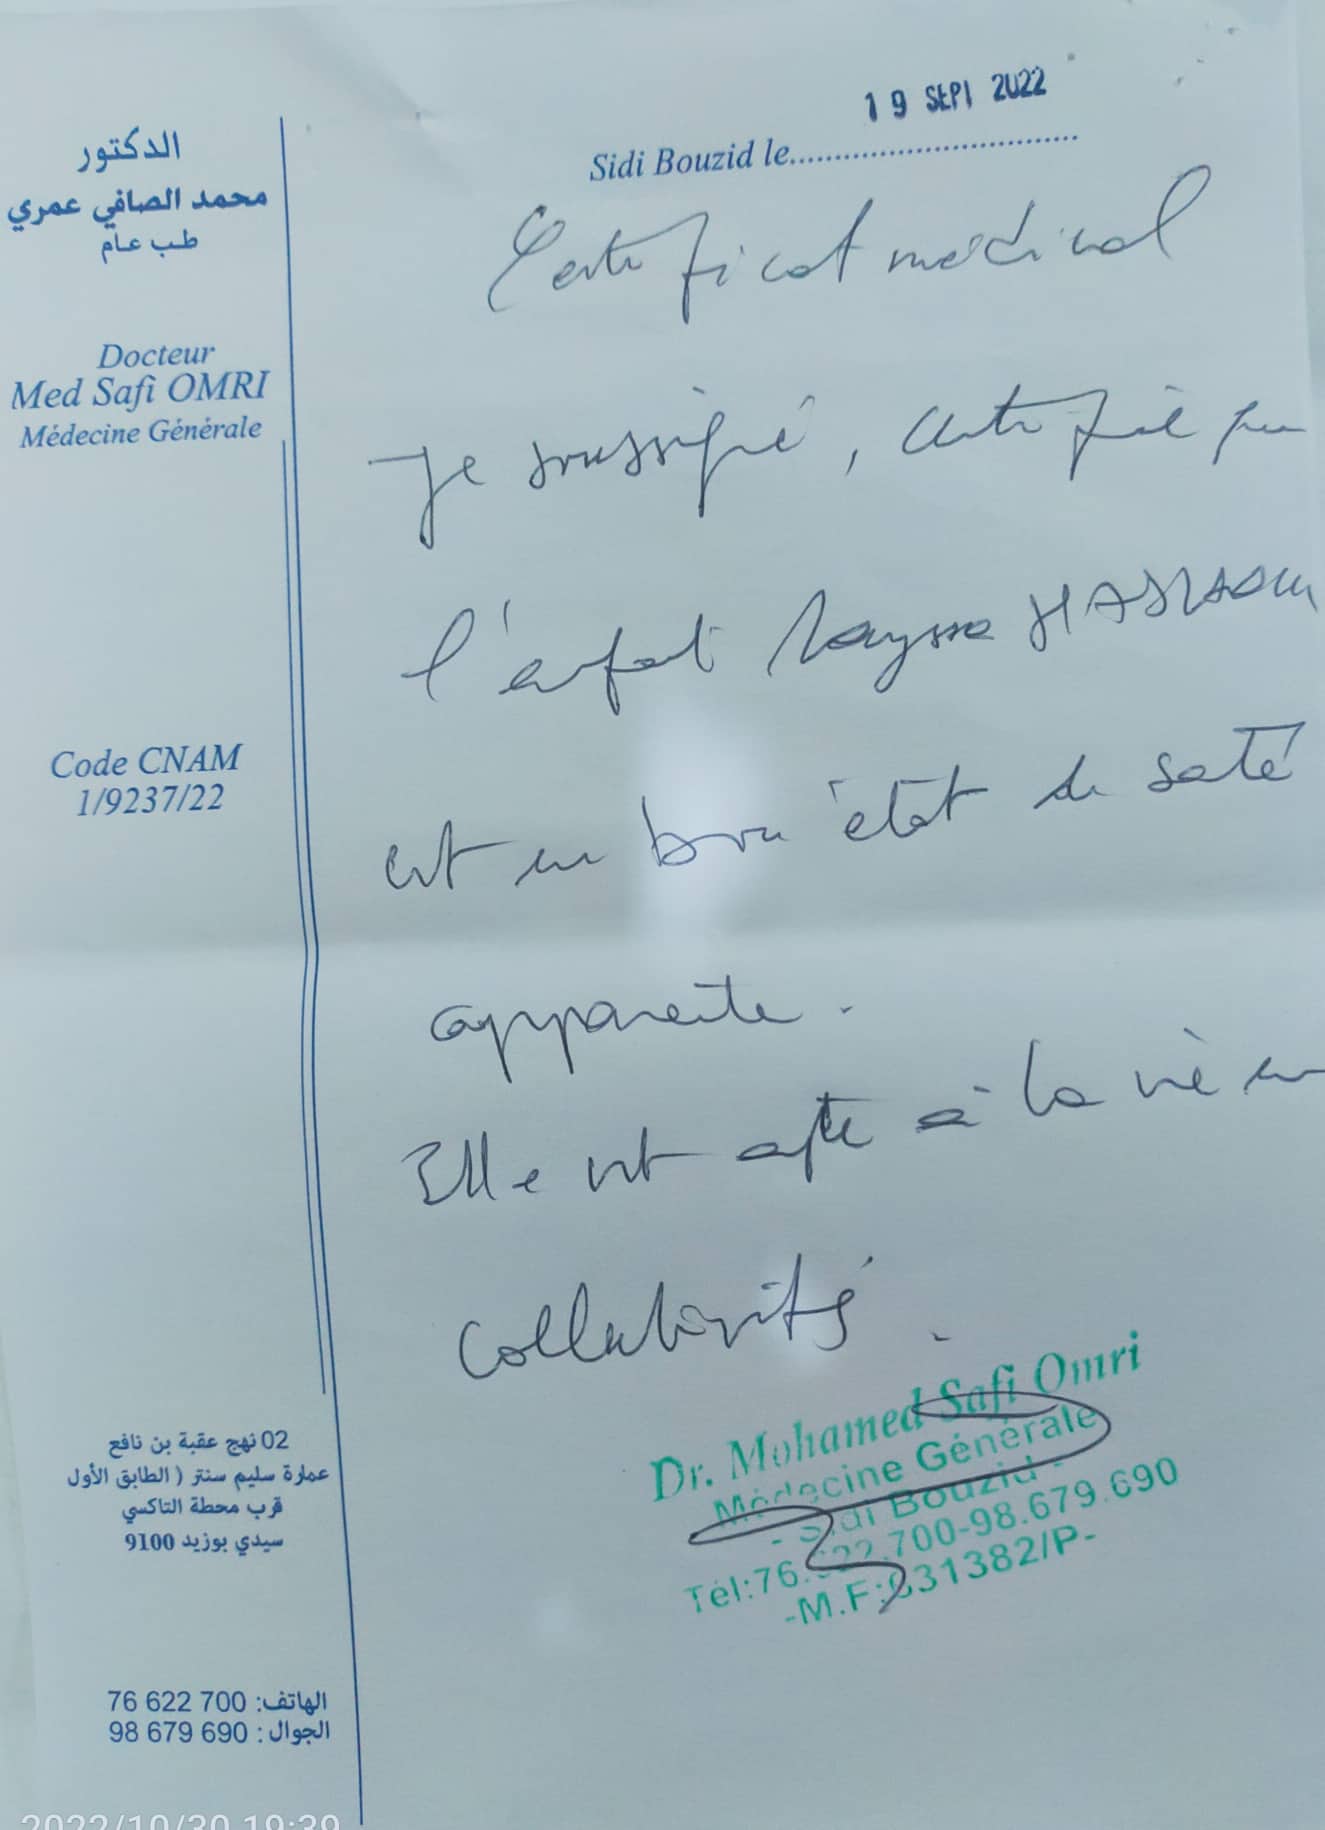 19 SEPT 2022
Sidi Bouzid le
الدكتور
محمد الصافي عمري
طب عام
Docteur
Med Safi OMRI
Médecine Générale
Code CNAM
1/9237/22
Certificat médical
Je soussigné, certifie que
l'enfant
est en bon état de santé
apparente.
Elle est apte à la vie en
collectivité.
Dr. Mohamed Safi Omri
Médecine Générale
- Sidi Bouzid -
Tél:76.622.700-98.679.690
-M.F: 31382/P-
02 نهج عقبة بن نافع
عمارة سليم سنتر ( الطابق الأول
قرب محطة التاكسي
سيدي بوزيد 9100
الهاتف: 76 622 700
الجوال : 98 679 690
2022/10/30 19:39